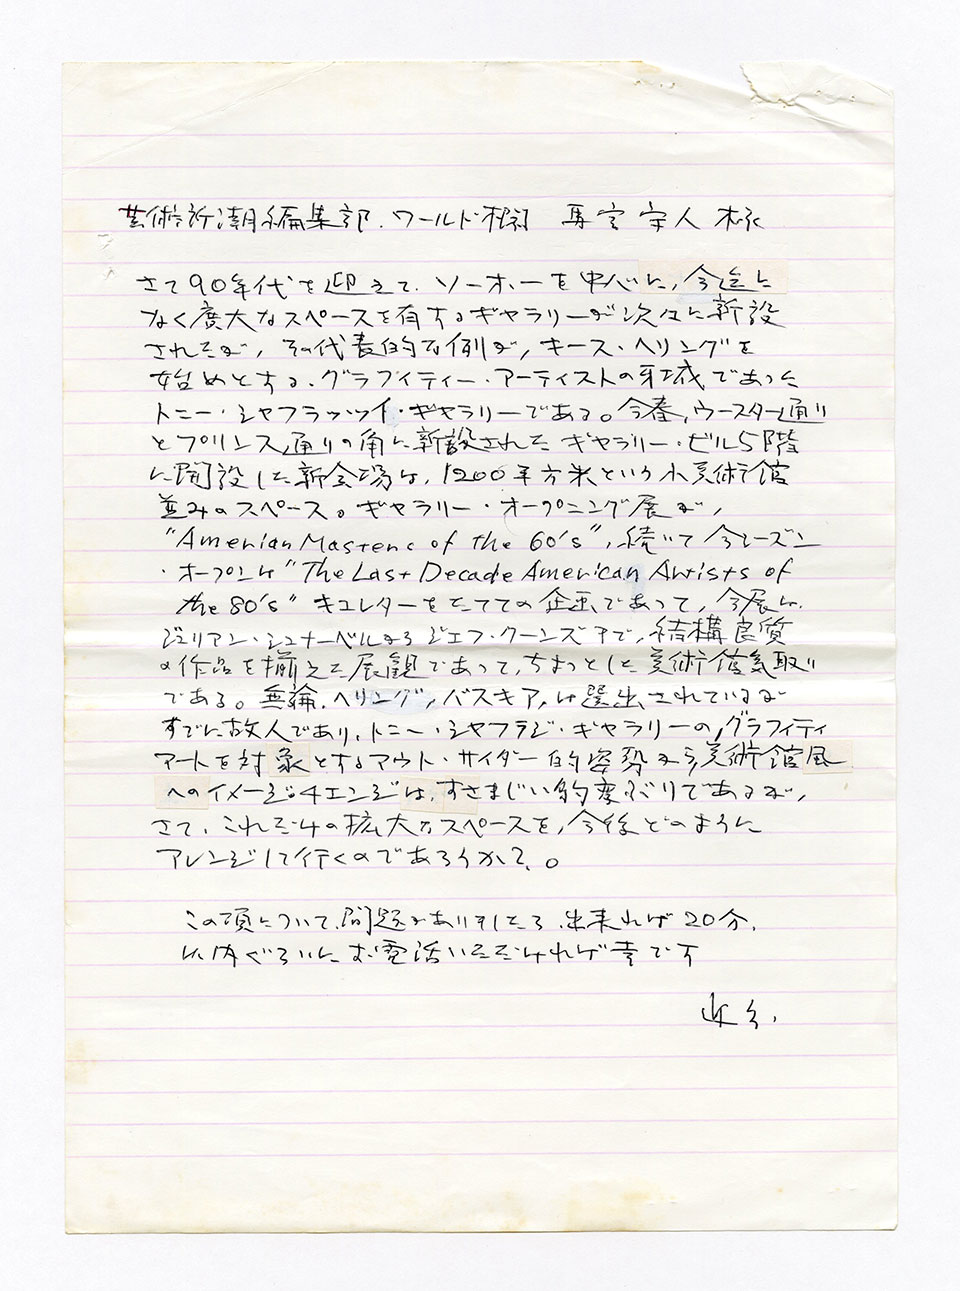 芸術新潮編集部、ワールド欄 馬宮守人 様
さて90年代を迎えて、ソーホーを中心に、今迄に
なく広大なスペースを有するギャラリーが次々に新設
されたが、その代表的な例が、キース・ヘリングを
始めとする、グラフィティー・アーティストの牙城であった
トニー・シャフラッツイ・ギャラリーである。今春、ウースター通り
とプリンス通りの角に新設されたギャラリー・ビル5階
に開設した新会場は、1200平方米という小美術館
並みのスペース。ギャラリー・オープニング展が、
"Amerian Masters of the 60's"、続いて今シーズン
・オープンは"The Last Decade American Artists of
the 80's" キュレターをたてての企画であって、今展は、
ジュリアン・シュナーベルからジェフ・クーンズまで、結構良質
の作品を揃えた展観であって、ちょっとした美術館気取り
である。無論、ヘリング、バスキア、は選出されているが
すでに故人であり、トニー・シャフラジ・ギャラリーの、グラフィティ
アートを対象とするアウト・サイダー的姿勢から美術館風
へのイメージ・チェンジは、すさまじい豹変ぶりであるが、
さて、これだけの拡大なスペースを、今後どのように
アレンジして行くのであろうか?。
この項について、問題がありましたら、出来れば20分、
以内ぐらいにお電話いただければ幸です